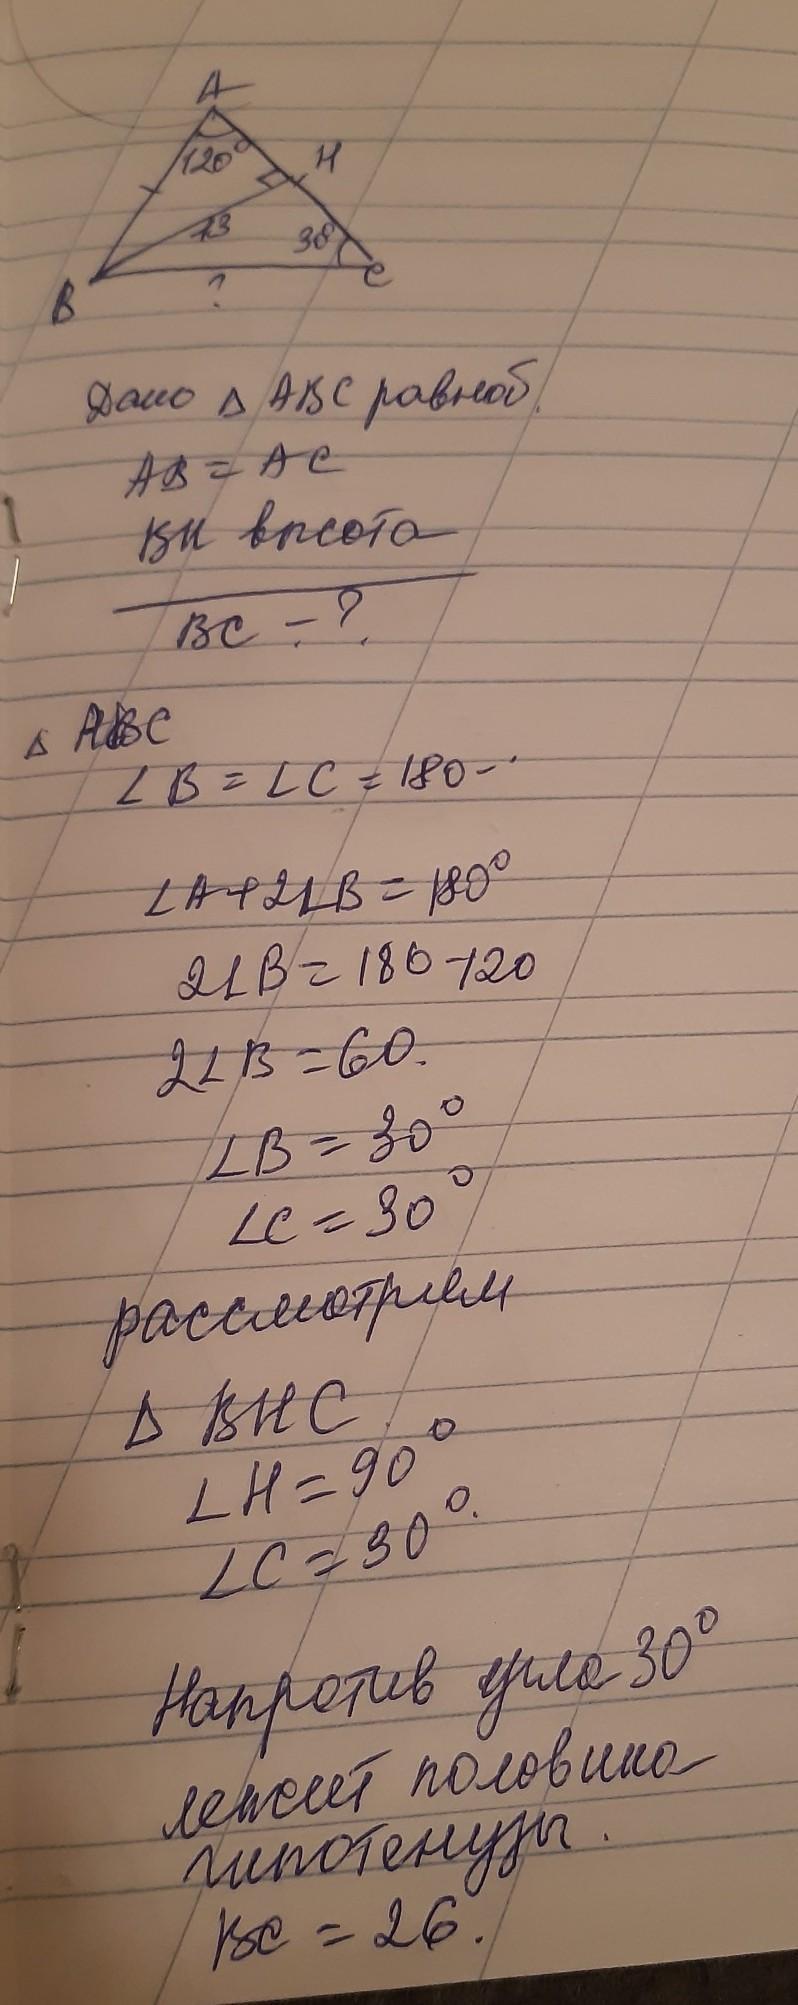 A
120°
H
13
30
B
?
C
Дано Δ ABC равноб.
AB = AC
BH высота
BC - ?
Δ ABC
∠B = ∠C = 180-
∠A+2∠B = 180°
2∠B = 180-120
2∠B = 60.
∠B = 30°
∠C = 30°
рассмотрием
Δ BHC
∠H = 90°
∠C = 30°.
Напротив угла 30°
лежит половина
гипотенузы.
BC = 26.